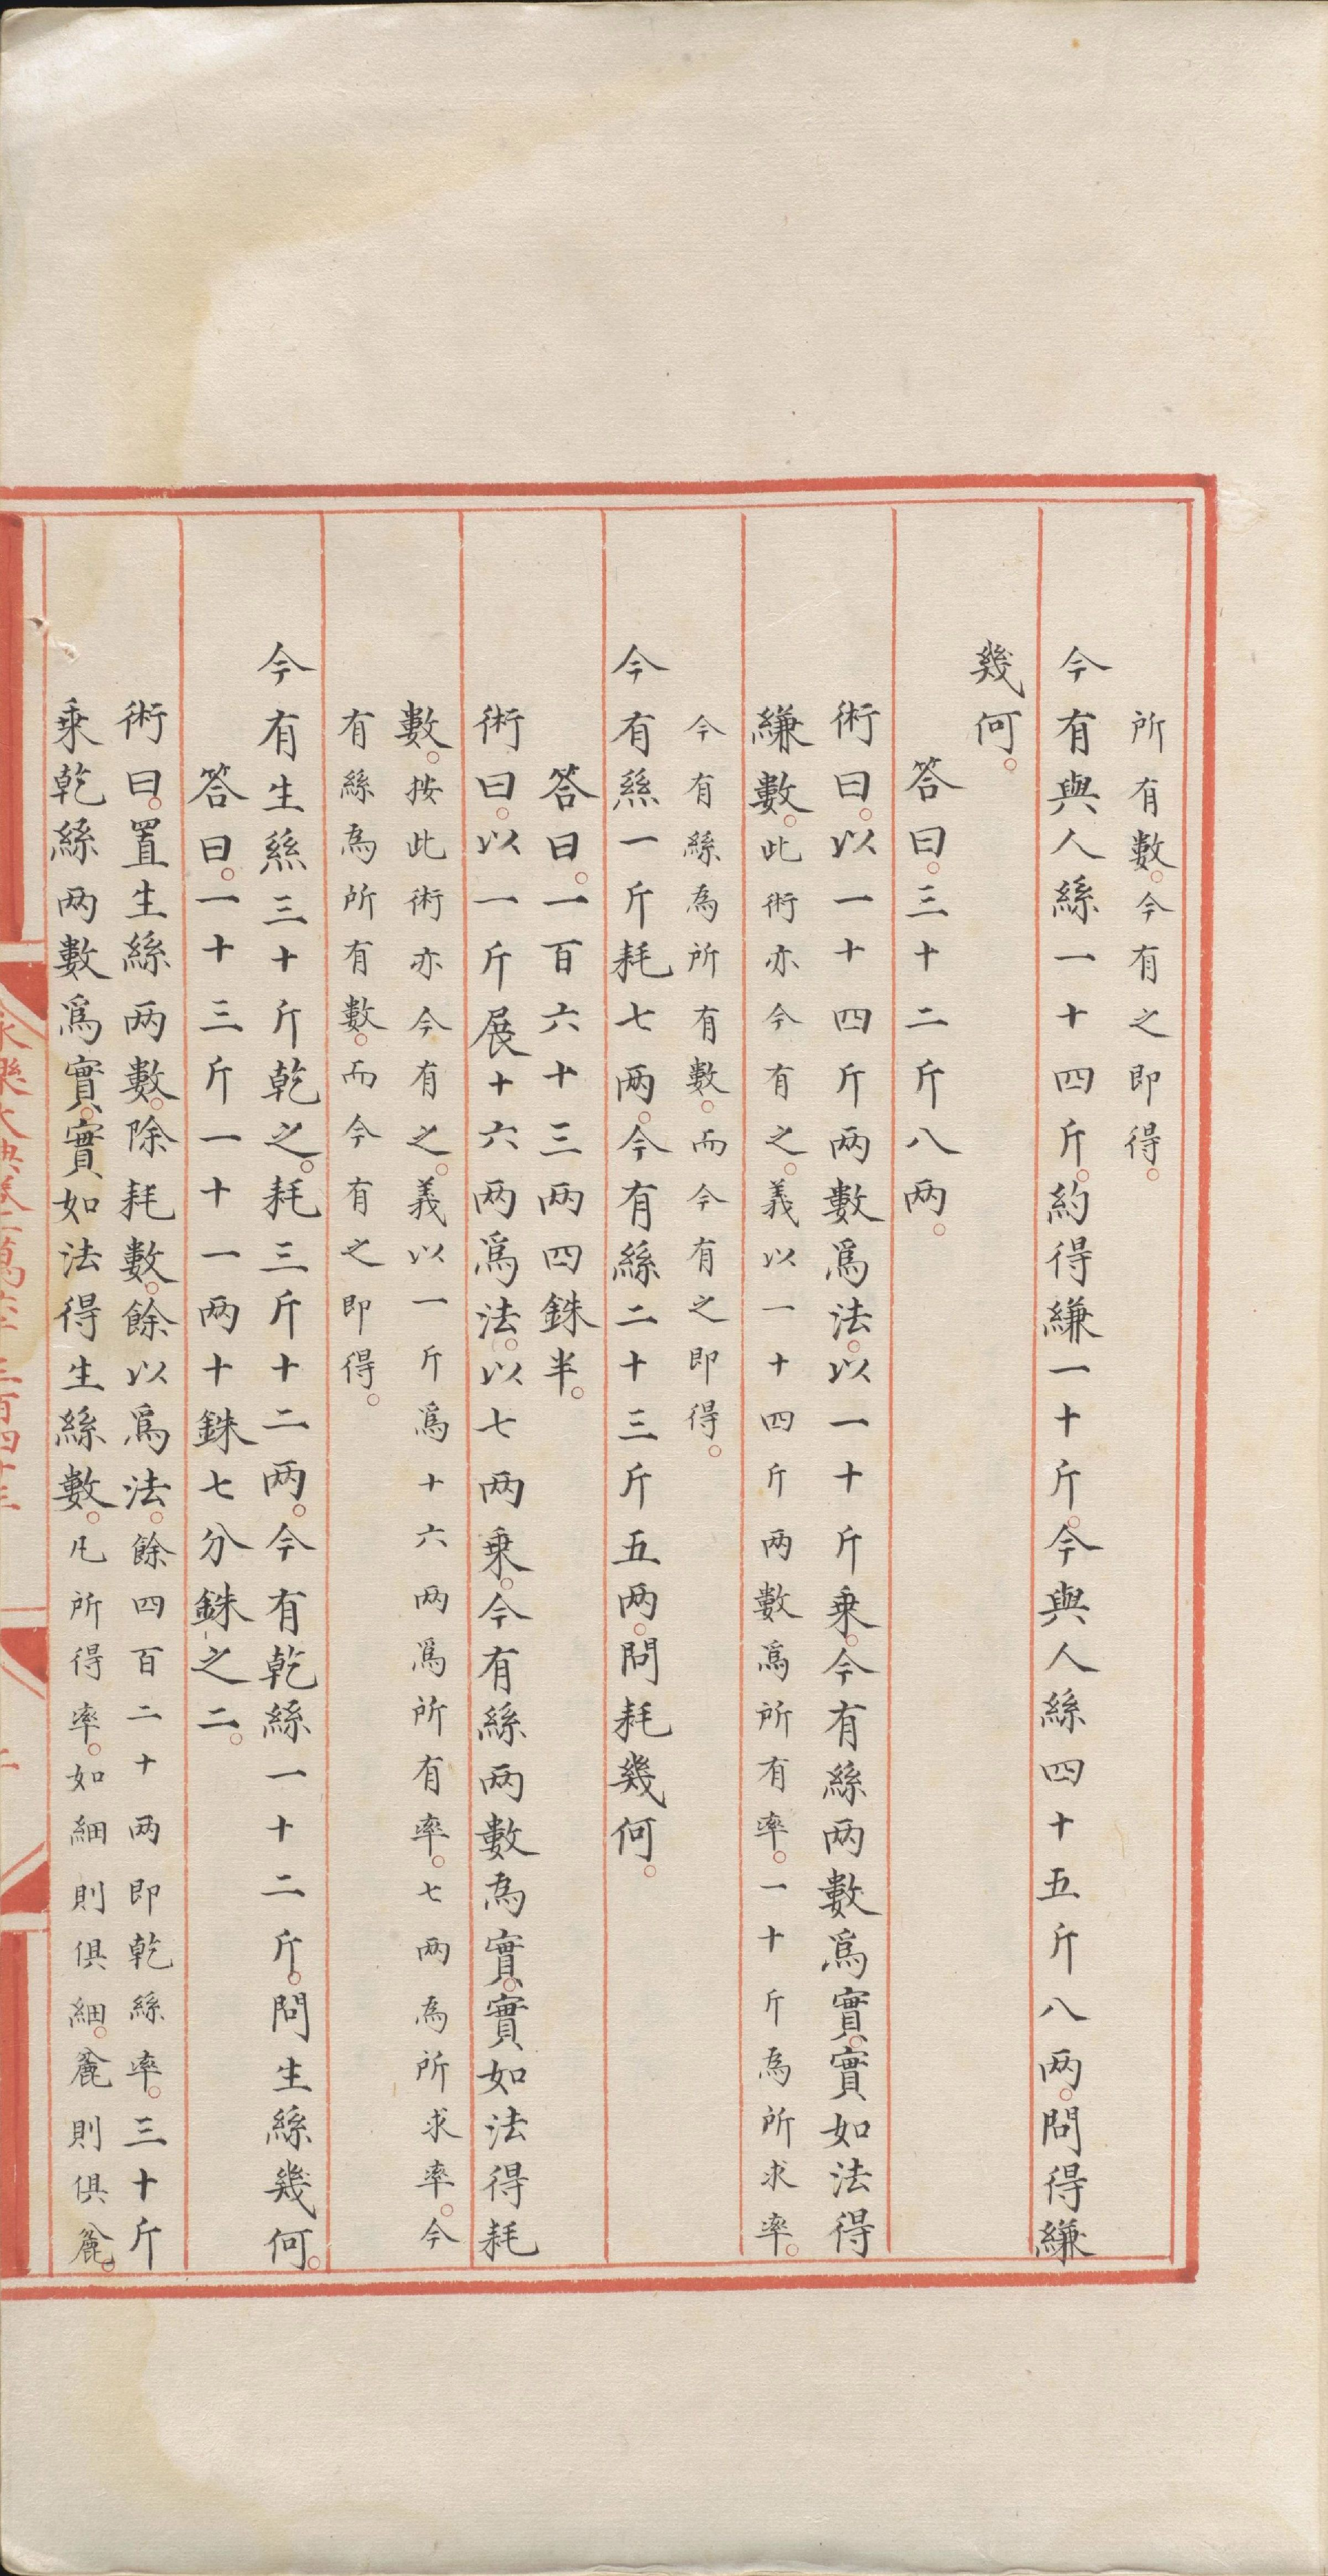 所有數。今有之即得。
今有與人絲一十四斤。約得縑一十斤。今與人絲四十五斤八两。問得縑
幾何。
答曰。三十二斤八两。
術曰。以一十四斤两數爲法。以一十斤乘。今有絲两數爲實。實如法得
縑數。此術亦今有之。義以一十四斤两數爲所有率。一十斤為所求率。
今有絲為所有數。而今有之即得。
今有絲一斤耗七两。今有絲二十三斤五两。問耗幾何。
答曰。一百六十三两四銖半。
術曰。以一斤展十六两爲法。以七两乘。今有絲两數為實。實如法得耗
數。按此術亦今有之。義以一斤爲十六两爲所有率。七两為所求率。今
有絲為所有數。而今有之即得。
今有生絲三十斤乾之。耗三斤十二两。今有乾絲一十二斤。問生絲幾何。
答曰。一十三斤一十一两十銖七分銖之二。
術曰。置生絲两數。除耗數。餘以爲法。餘四百二十两即乾絲率。三十斤
乘乾絲两數爲實。實如法得生絲數。凢所得率。如細則俱細。麄則俱麄。